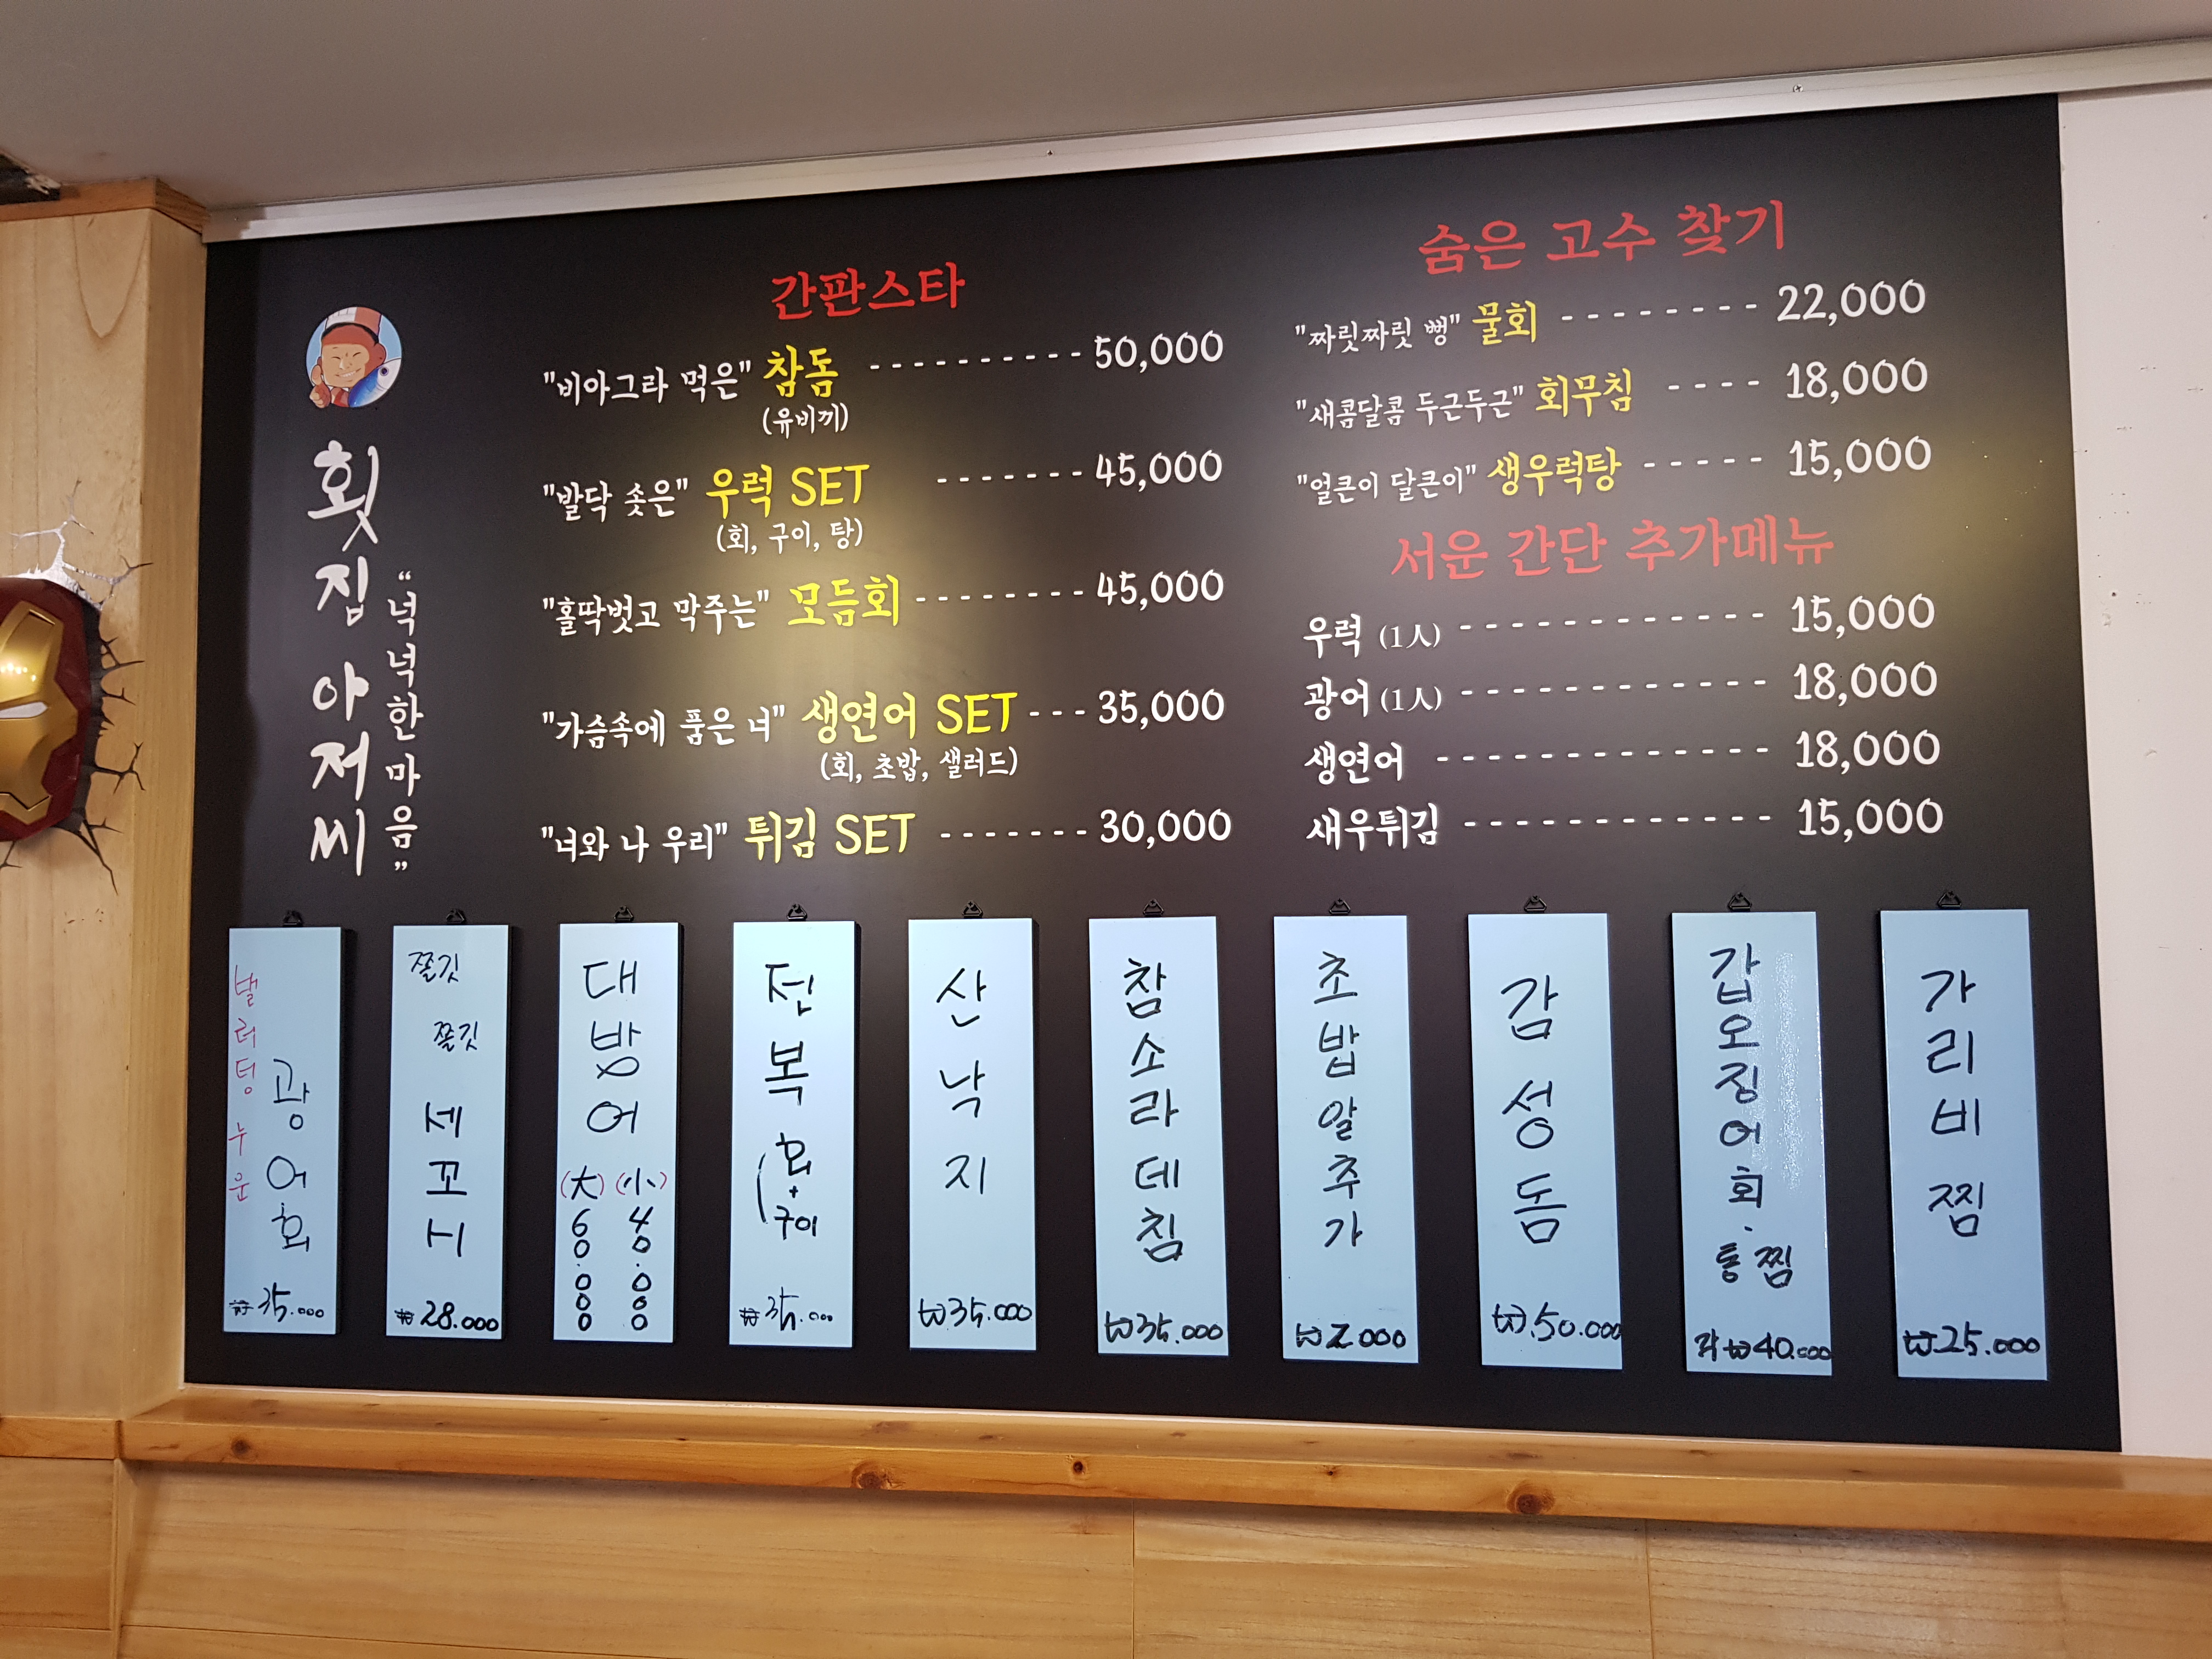 횟집 아저씨
"넉넉한 마음"
간판스타
"비아그라 먹은" 참돔 ---------- 50,000
(유비끼)
"발닥 솟은" 우럭 SET ------- 45,000
(회, 구이, 탕)
"홀딱벗고 막주는" 모듬회 -------- 45,000
"가슴속에 품은 너" 생연어 SET --- 35,000
(회, 초밥, 샐러드)
"너와 나 우리" 튀김 SET ------- 30,000
숨은 고수 찾기
"짜릿짜릿 뻥" 물회 -------- 22,000
"새콤달콤 두근두근" 회무침 ---- 18,000
"얼큰이 달큰이" 생우럭탕 ----- 15,000
서운 간단 추가메뉴
우럭 (1人) ------------- 15,000
광어 (1人) ------------- 18,000
생연어 -------------- 18,000
새우튀김 ------------- 15,000
벌러덩 누운
광어회
₩35.000
쫄깃
쫄깃
세꼬시
₩28.000
대방어
(大) (小)
60.000 40.000
전복
(회+구이
₩35.000
산낙지
₩35.000
참소라데침
₩35.000
초밥알추가
₩2.000
감성돔
₩.50.000
갑오징어회.통찜
각 ₩40.000
가리비찜
₩25.000